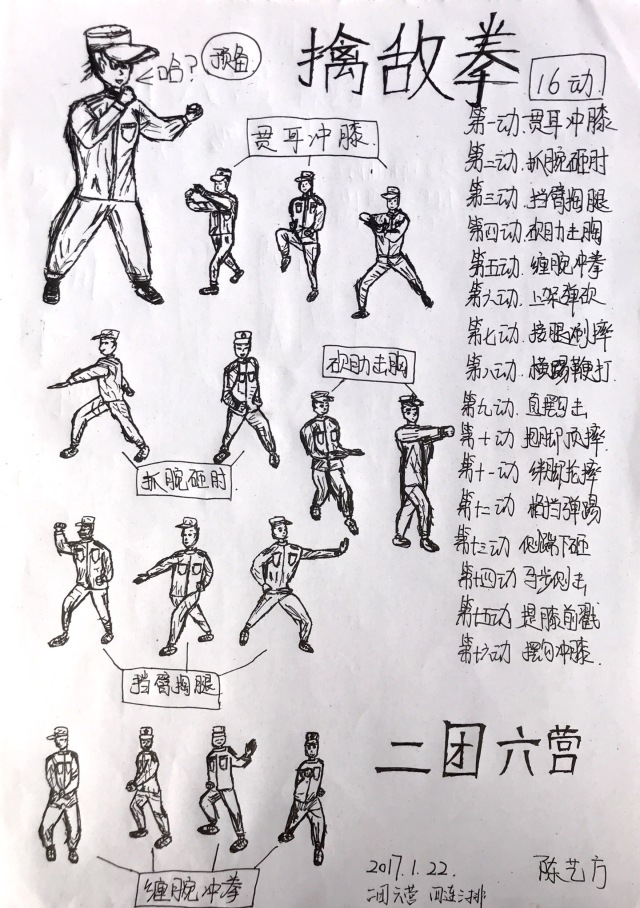 擒敌拳
16动
哈?
预备
贯耳冲膝
第一动.贯耳冲膝
第二动.抓腕砸肘
第三动.挡臂掏腿
第四动.砍肋击胸
第五动.缠腕冲拳
第六动.上架弹砍
第七动.接腿涮摔
第八动.横踢鞭打
第九动.直摆勾击
第十动.抱脚顶摔
第十一动 绊脚抡摔
第十二动 格挡弹踢
第十三动 侧踹下砸
第十四动 马步侧击
第十五动 提膝前戳
第十六动 摆勾冲膝.
砍肋击胸
抓腕砸肘
挡臂掏腿
二团六营
缠腕冲拳
2017.1.22.
二团六营 四连三排
陈艺方